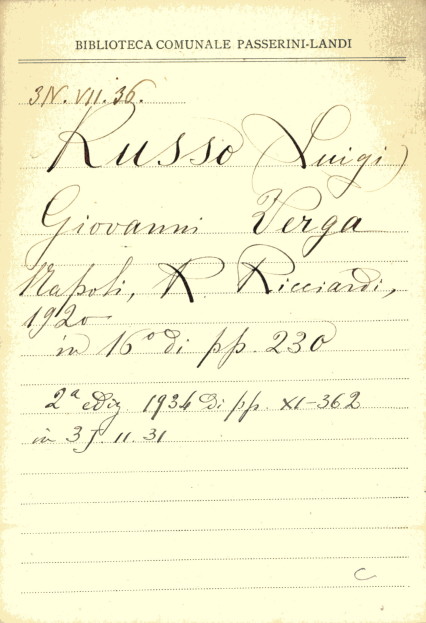 BIBLIOTECA COMUNALE PASSERINI-LANDI
3N.VII.36.
Russo (Luigi)
Giovanni Verga
Napoli, R. Ricciardi,
1920
in 16° di pp. 230
2ª ediz. 1934 di pp. XI-362
in 3J.11.31
C